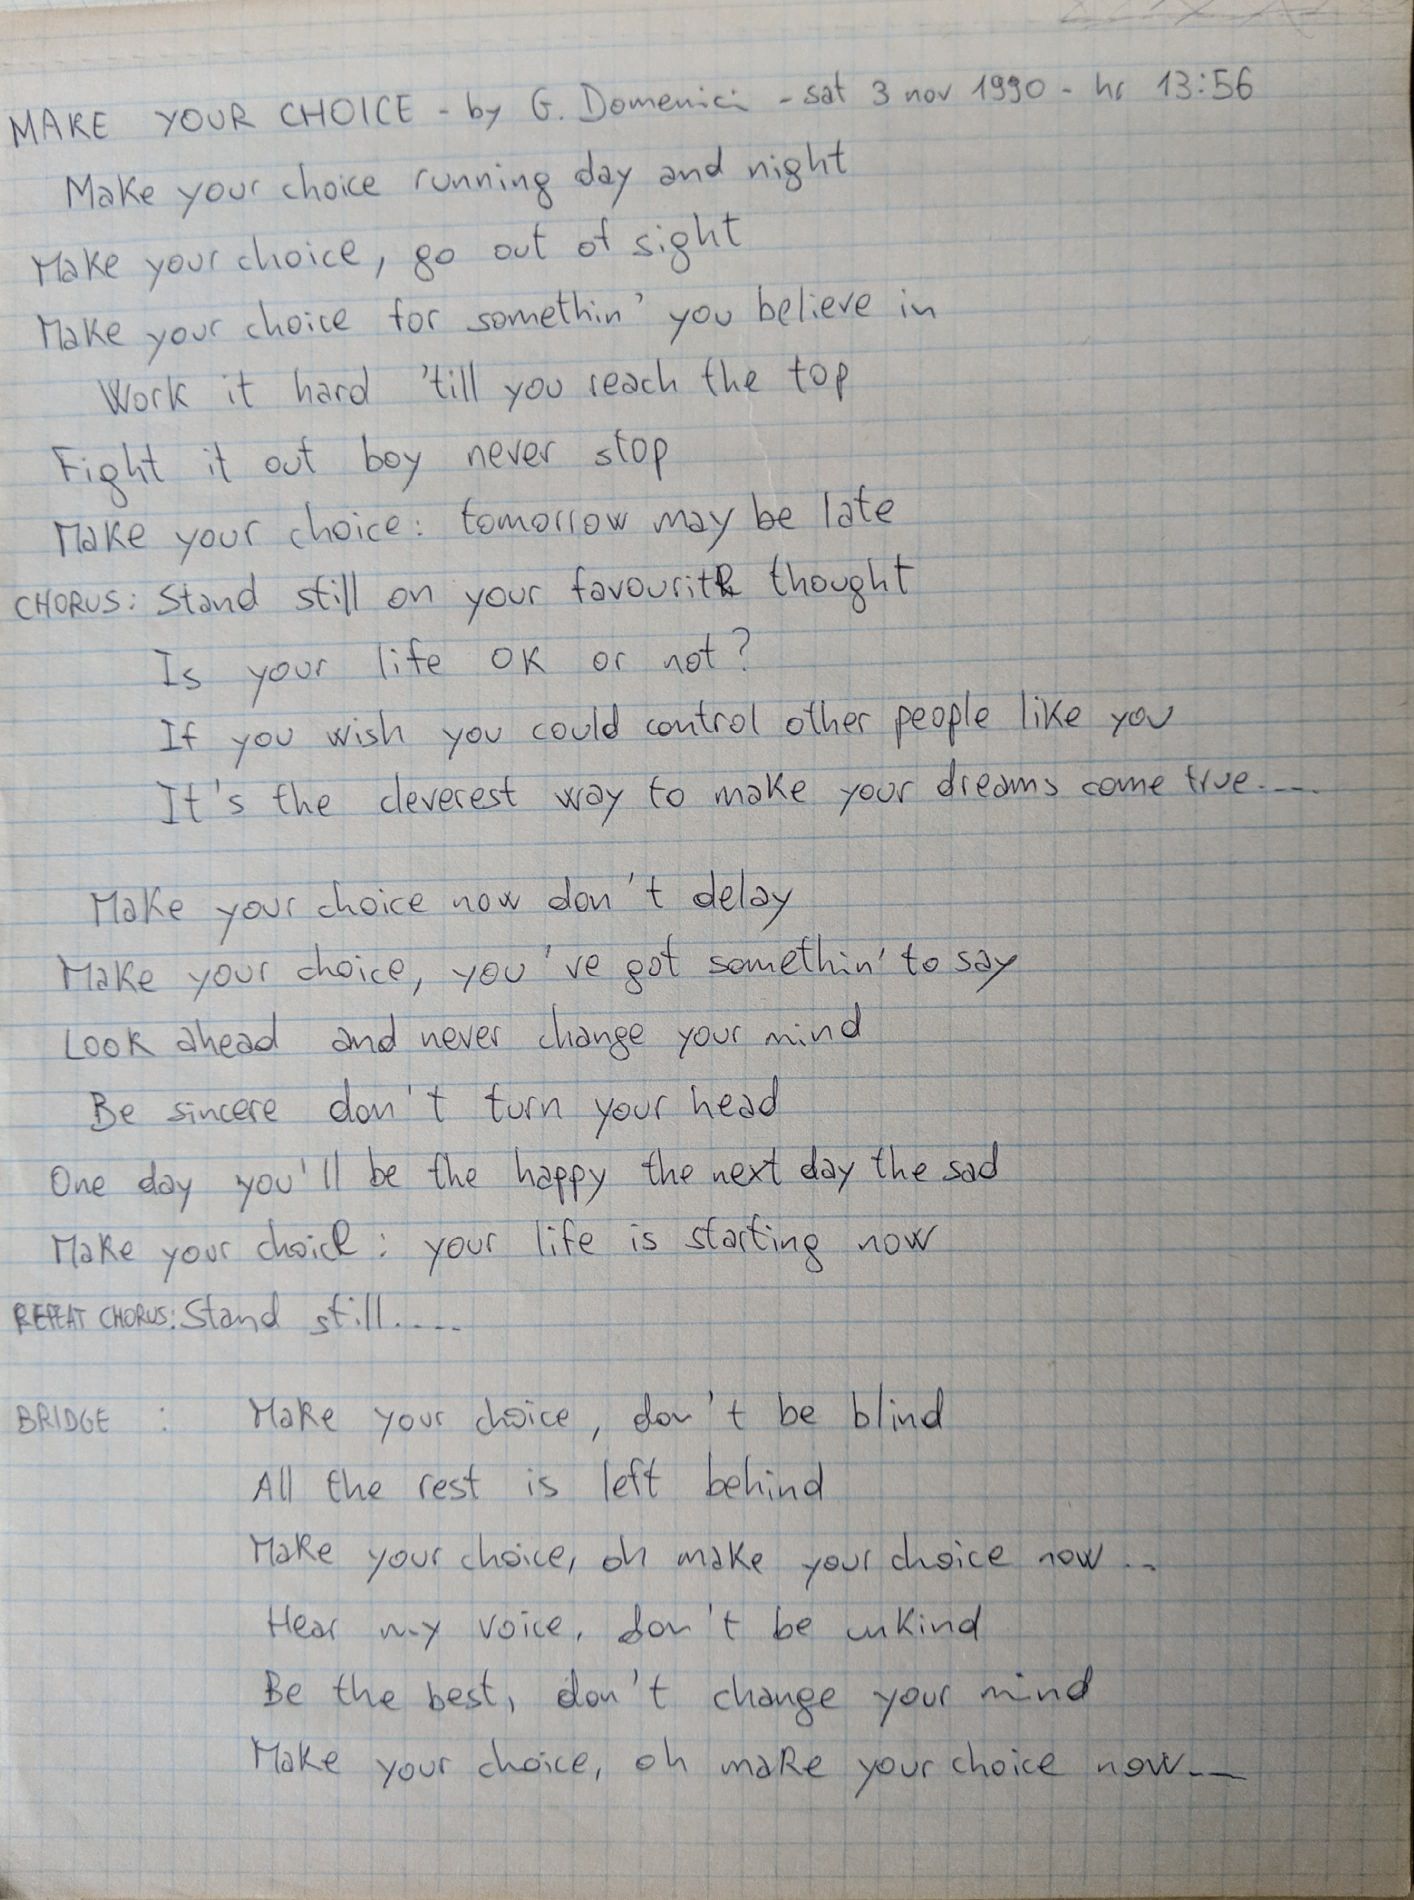 MAKE YOUR CHOICE - by G. Domenici - sat 3 nov 1990 - hr 13:56
Make your choice running day and night
Make your choice, go out of sight
Make your choice for somethin' you believe in
Work it hard 'till you reach the top
Fight it out boy never stop
Make your choice: tomorrow may be late
CHORUS: Stand still on your favourite thought
Is your life OK or not?
If you wish you could control other people like you
It's the cleverest way to make your dreams come true....
Make your choice now don't delay
Make your choice, you've got somethin' to say
Look ahead and never change your mind
Be sincere don't turn your head
One day you'll be the happy the next day the sad
Make your choice: your life is starting now
REPEAT CHORUS: Stand still....
BRIDGE : Make your choice, don't be blind
All the rest is left behind
Make your choice, oh make your choice now..
Hear my voice, don't be unkind
Be the best, don't change your mind
Make your choice, oh make your choice now...